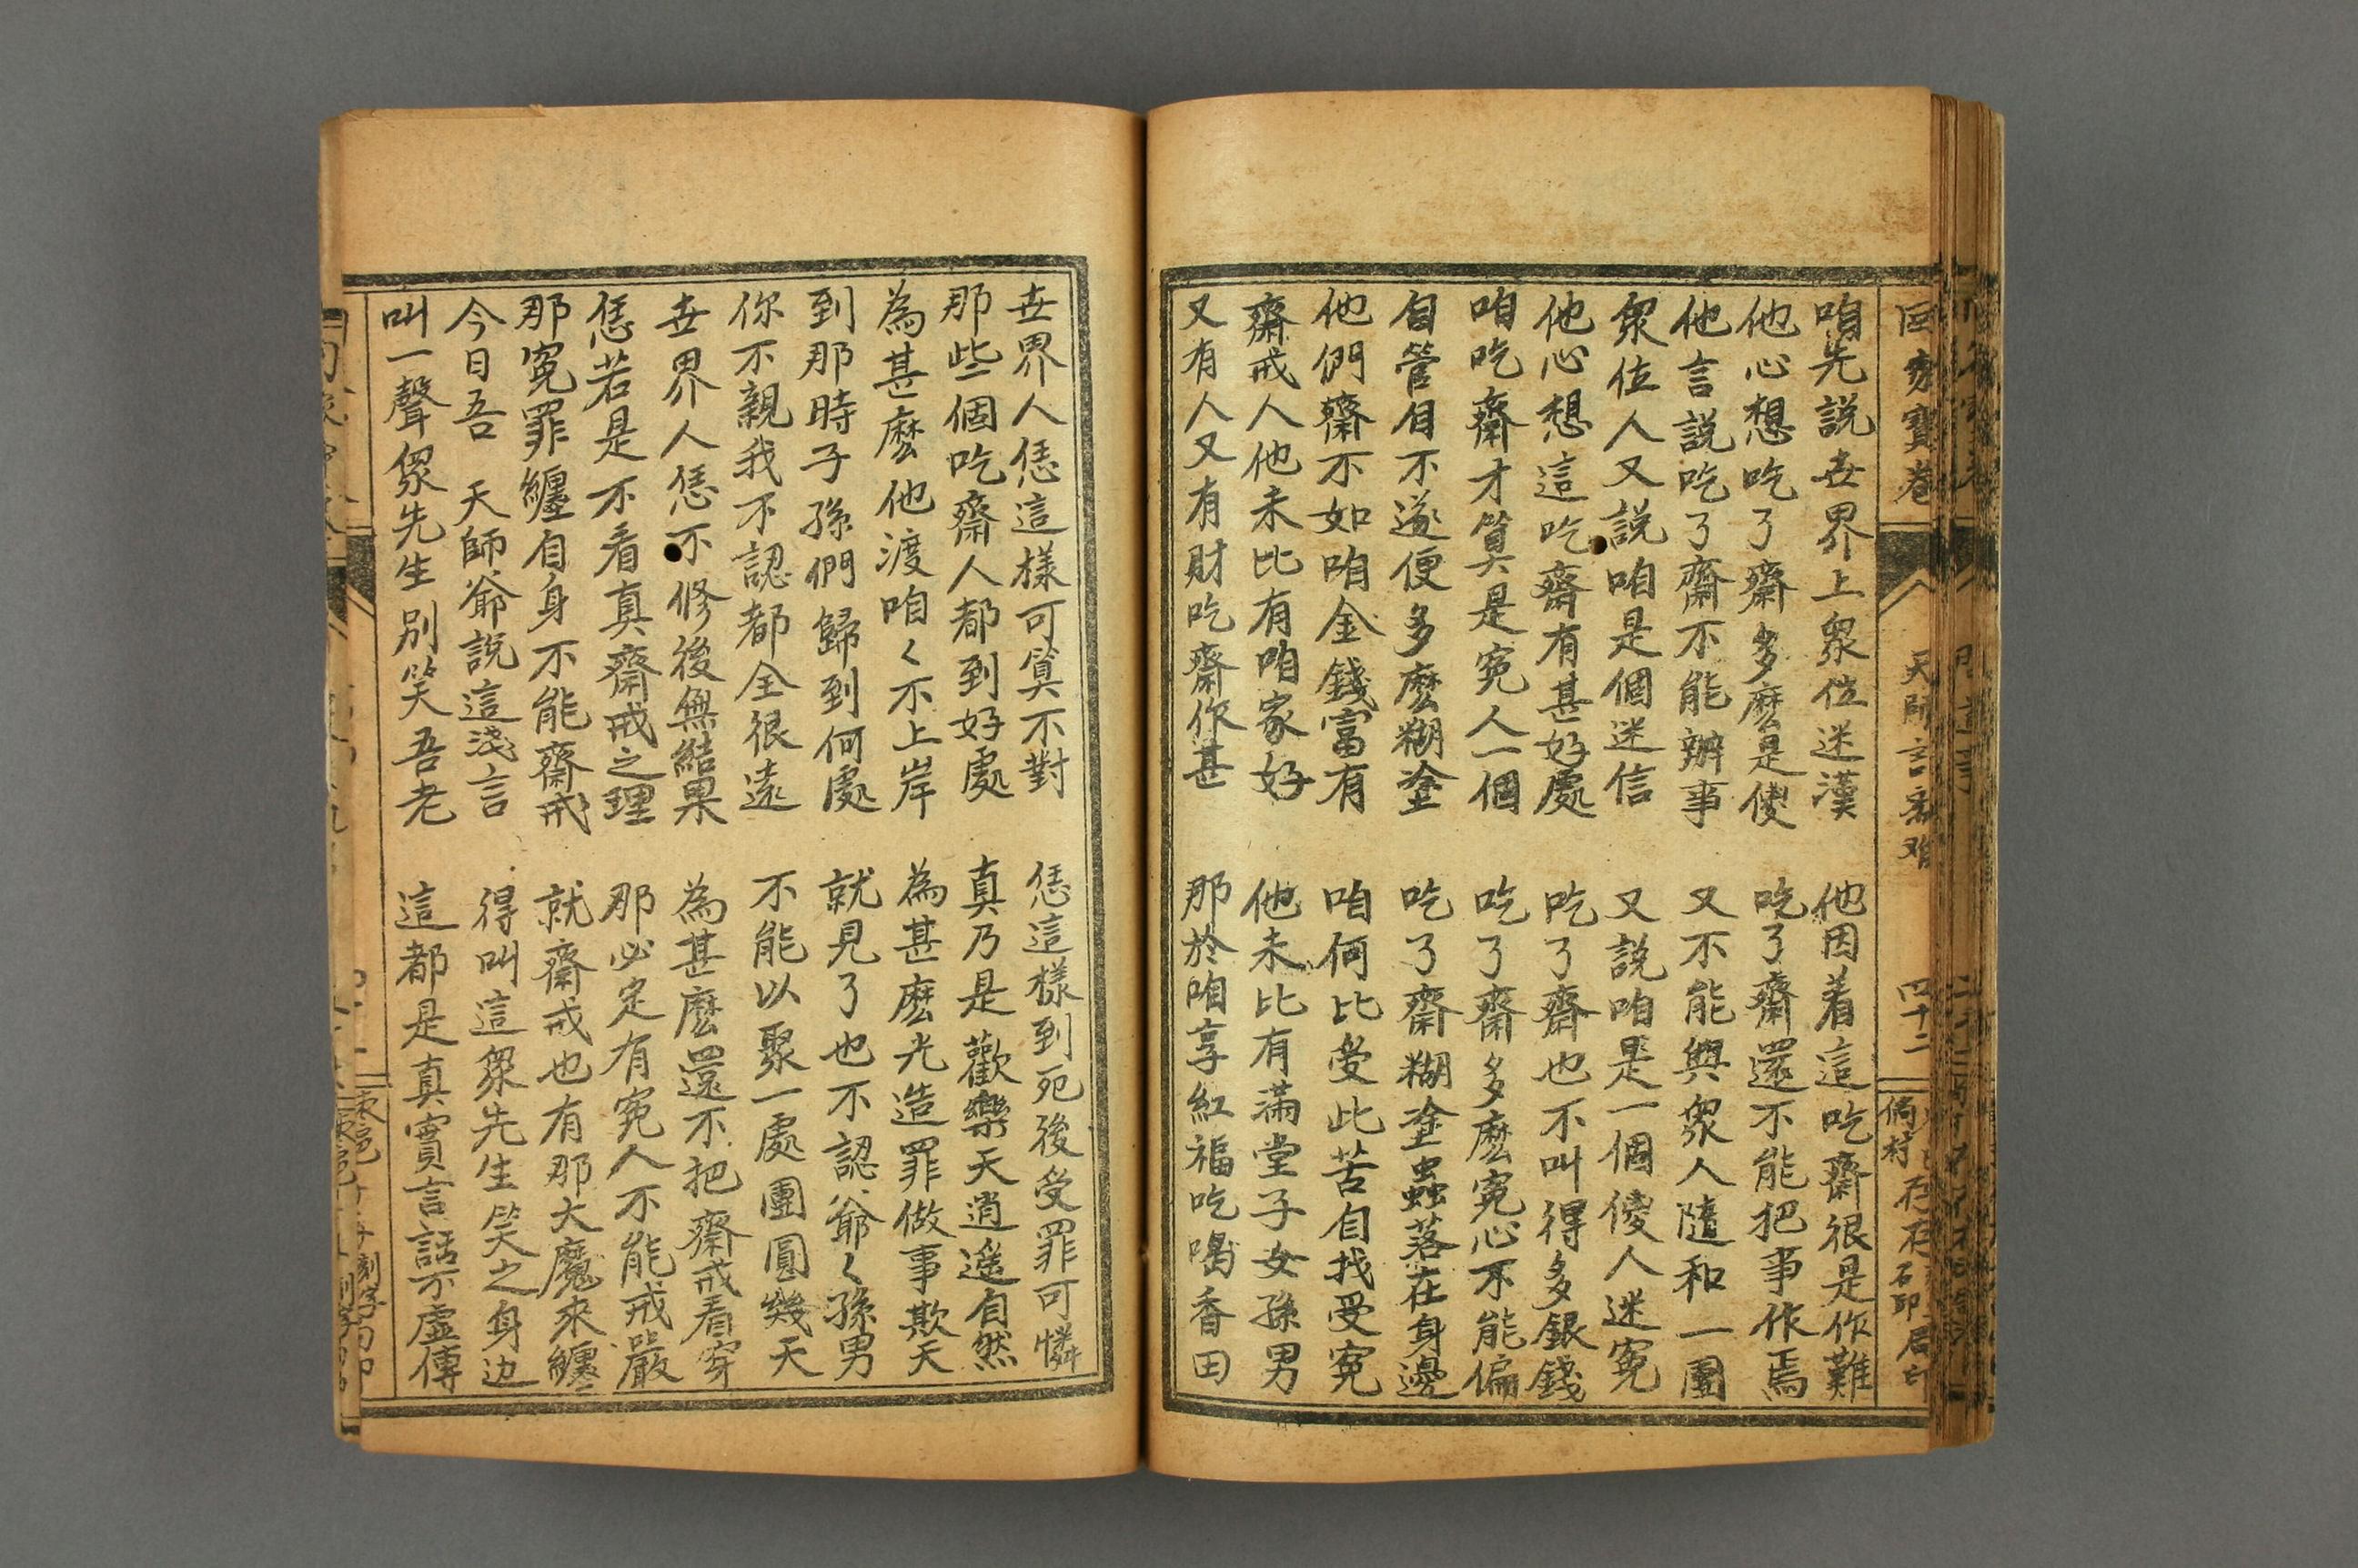 咱先説世界上衆位迷漢　他因着這吃齋很是作難
他心想吃了齋多麽是傻　吃了齋還不能把事作焉
他言説吃了齋不能辦事　又不能與衆人隨和一團
衆位人又説咱是個迷信　又説咱是一個傻人迷冤
他心想這吃齋有甚好處　吃了齋也不叫得多銀錢
咱吃齋才筭是冤人一個　吃了齋多麽冤心不能偏
自管自不遂便多麽糊塗　吃了齋糊塗蟲落在身邊
他們齋不如咱金錢富有　咱何比受此苦自找受冤
齋戒人他未比有咱家好　他未比有滿堂子女孫男
又有人又有財吃齋作甚　那於咱享紅福吃喝香田
世界人恁這樣可筭不對　恁這樣到死後受罪可憐
那些個吃齋人都到好處　真乃是歡樂天逍遥自然
為甚麽他渡咱く不上岸　為甚麽光造罪做事欺天
到那時子孫們歸到何處　就見了也不認爺く孫男
你不親我不認都全很遠　不能以聚一處團圓幾天
世界人恁不修後無結果　為甚麽還不把齋戒看穿
恁若是不看真齋戒之理　那必定有冤人不能戒嚴
那冤罪纏自身不能齋戒　就齋戒也有那大魔來纏
今日吾　天師爺説這淺言　得叫這衆先生笑之身边
叫一聲衆先生別笑吾老　這都是真實言話不虚傳
家寶卷
四十二
石印局印